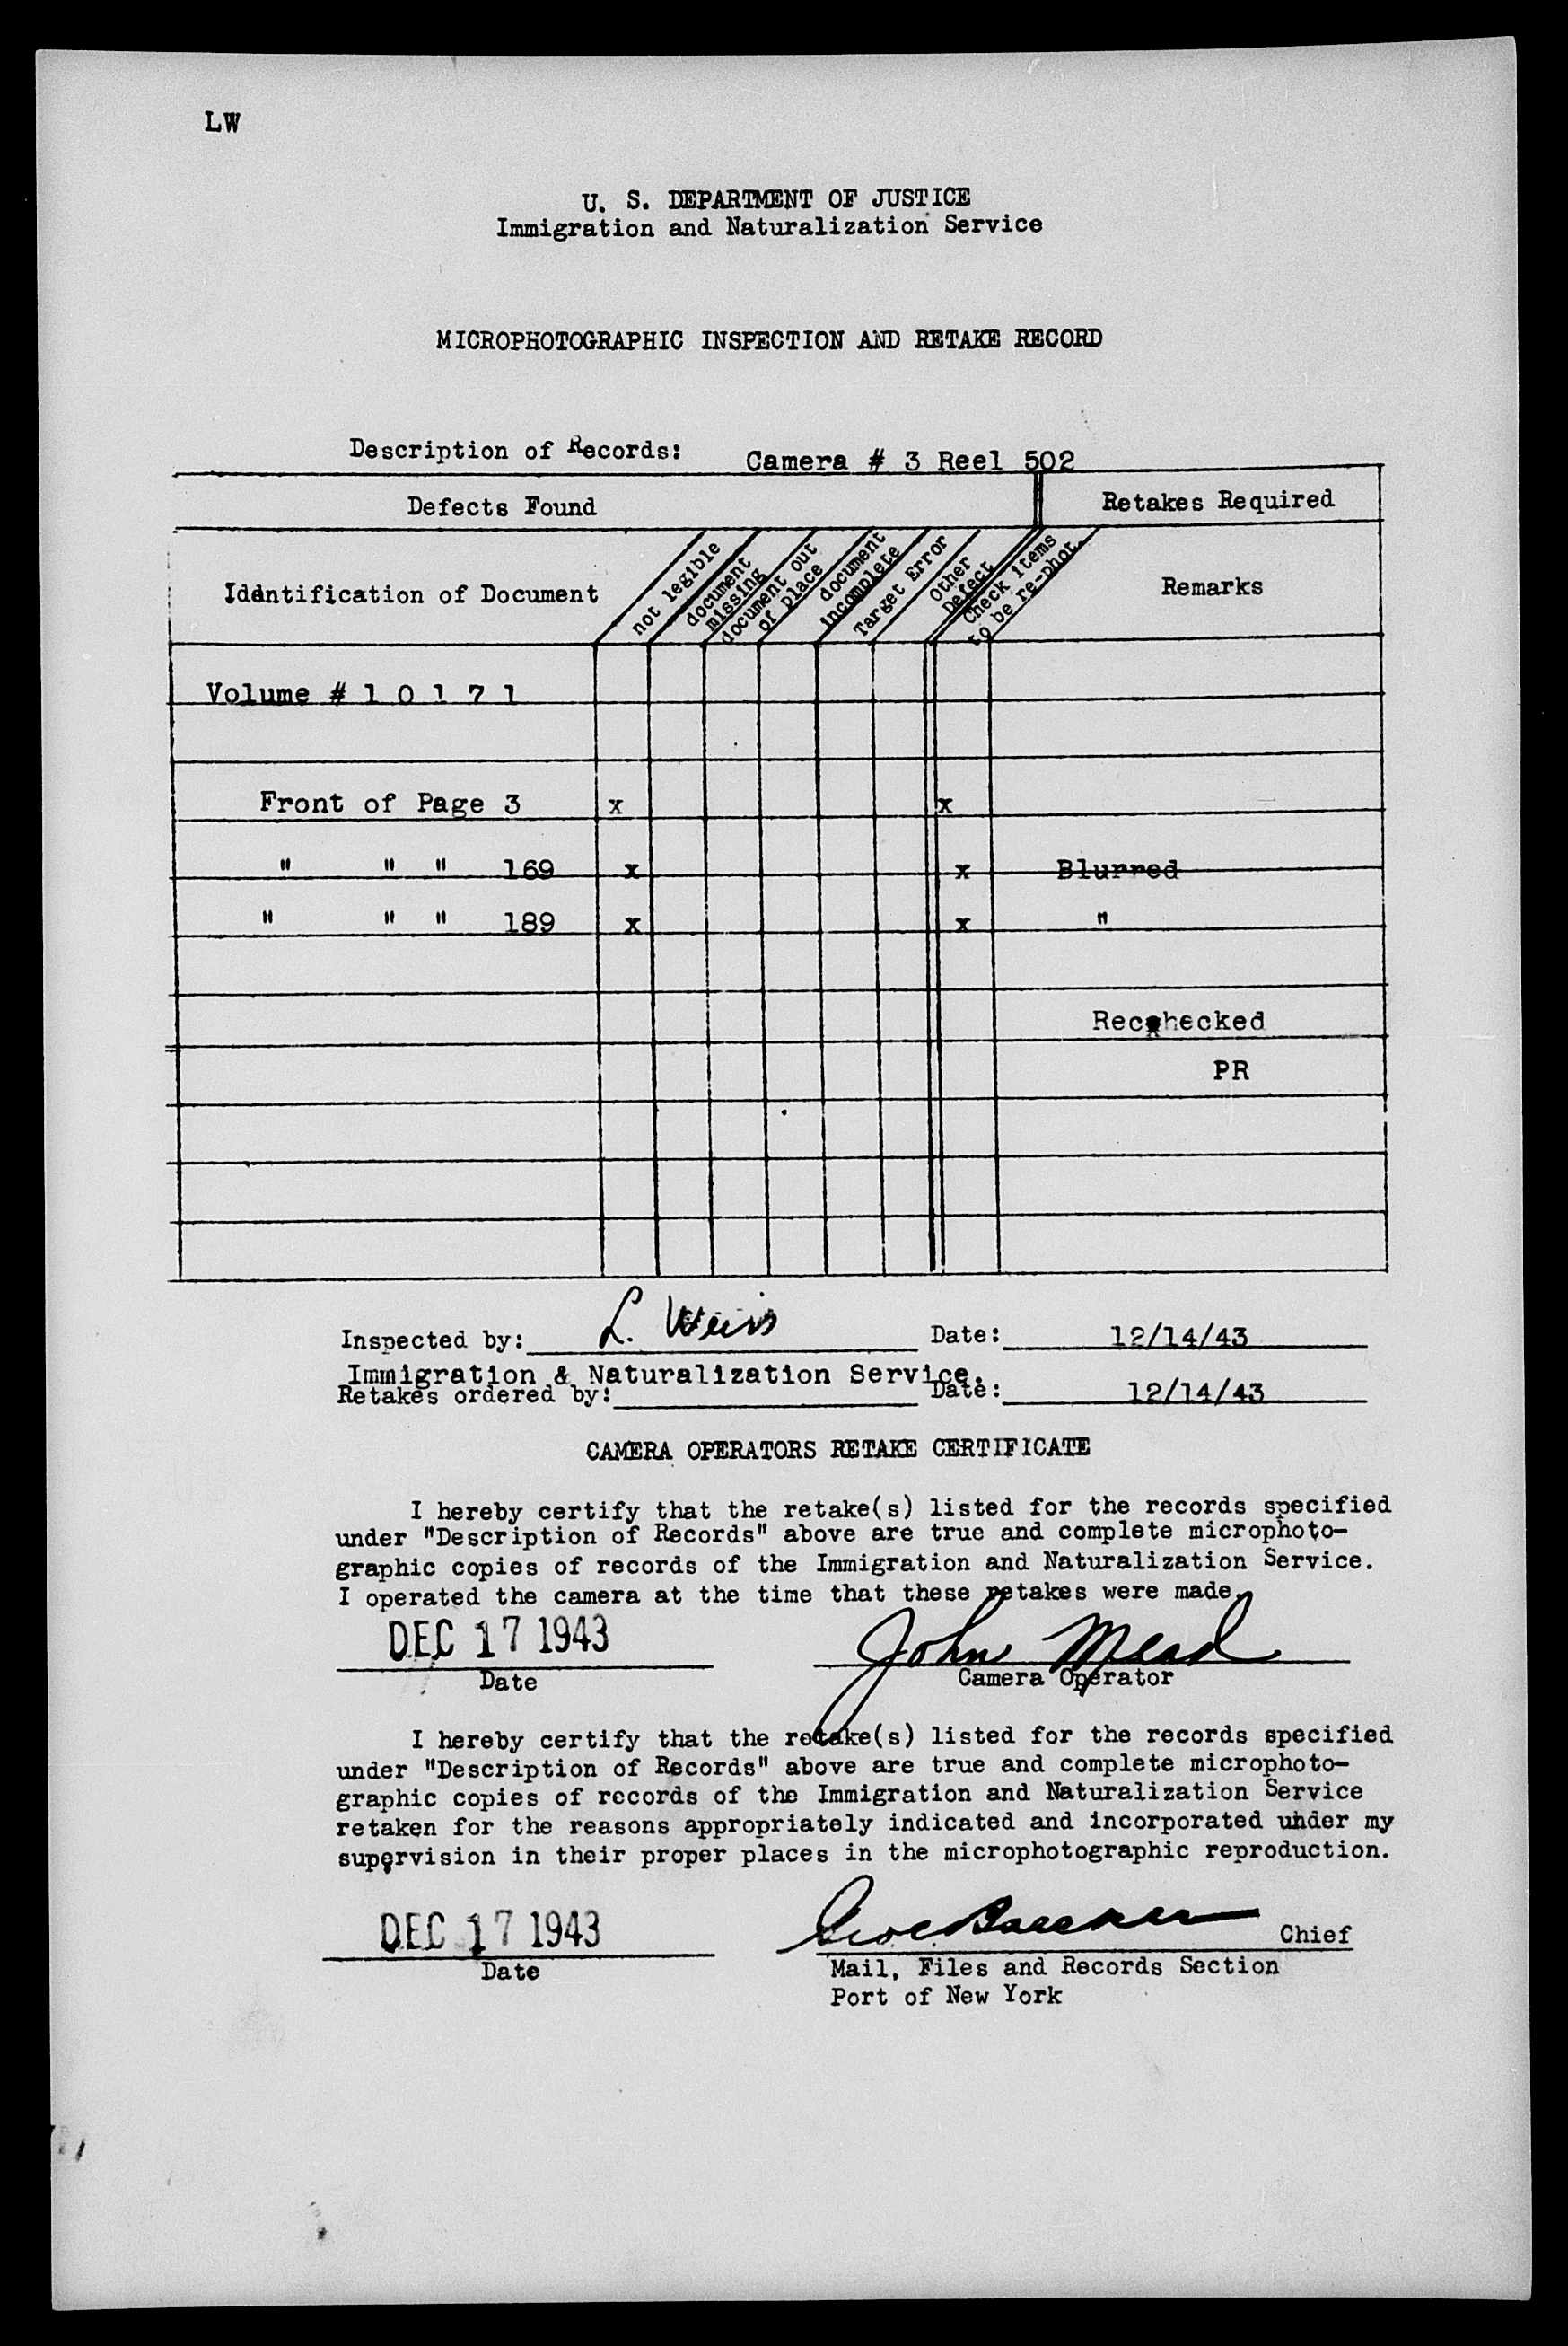 LW
U. S. DEPARTMENT OF JUSTICE
Immigration and Naturalization Service
MICROPHOTOGRAPHIC INSPECTION AND RETAKE RECORD
Description of Records: Camera # 3 Reel 502
Defects Found Retakes Required
Identification of Document not legible document missing document out of place document incomplete Target Error Other Defect Check items to be re-phot. Remarks
Volume # 1 0 1 7 1
Front of Page 3 x x
" " " 169 x x Blurred
" " " 189 x x "
Rechecked
PR
Inspected by: L. Weiss Date: 12/14/43
Immigration & Naturalization Service.
Retakes ordered by: Date: 12/14/43
CAMERA OPERATORS RETAKE CERTIFICATE
I hereby certify that the retake(s) listed for the records specified
under "Description of Records" above are true and complete microphoto-
graphic copies of records of the Immigration and Naturalization Service.
I operated the camera at the time that these retakes were made.
DEC 17 1943 John Mead
Date Camera Operator
I hereby certify that the retake(s) listed for the records specified
under "Description of Records" above are true and complete microphoto-
graphic copies of records of the Immigration and Naturalization Service
retaken for the reasons appropriately indicated and incorporated under my
supervision in their proper places in the microphotographic reproduction.
DEC 17 1943 Chief
Date Mail, Files and Records Section
Port of New York